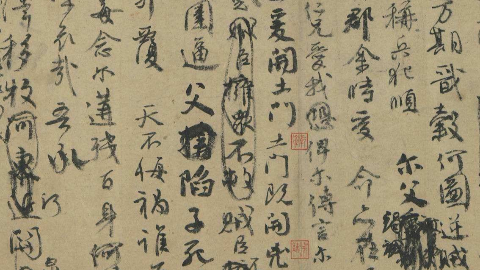 方期戩穀何圖逆賊
稱兵犯順 爾父
郡余時受命亦在
仁兄愛我恐俾爾傳言爾
爰開土門土門既開凶
賊臣擁衆不救賊臣擁
圍逼父陷子死
卵覆 天不悔禍誰
毒念爾遘殘百身何
哀哉吾承
移牧河東近關